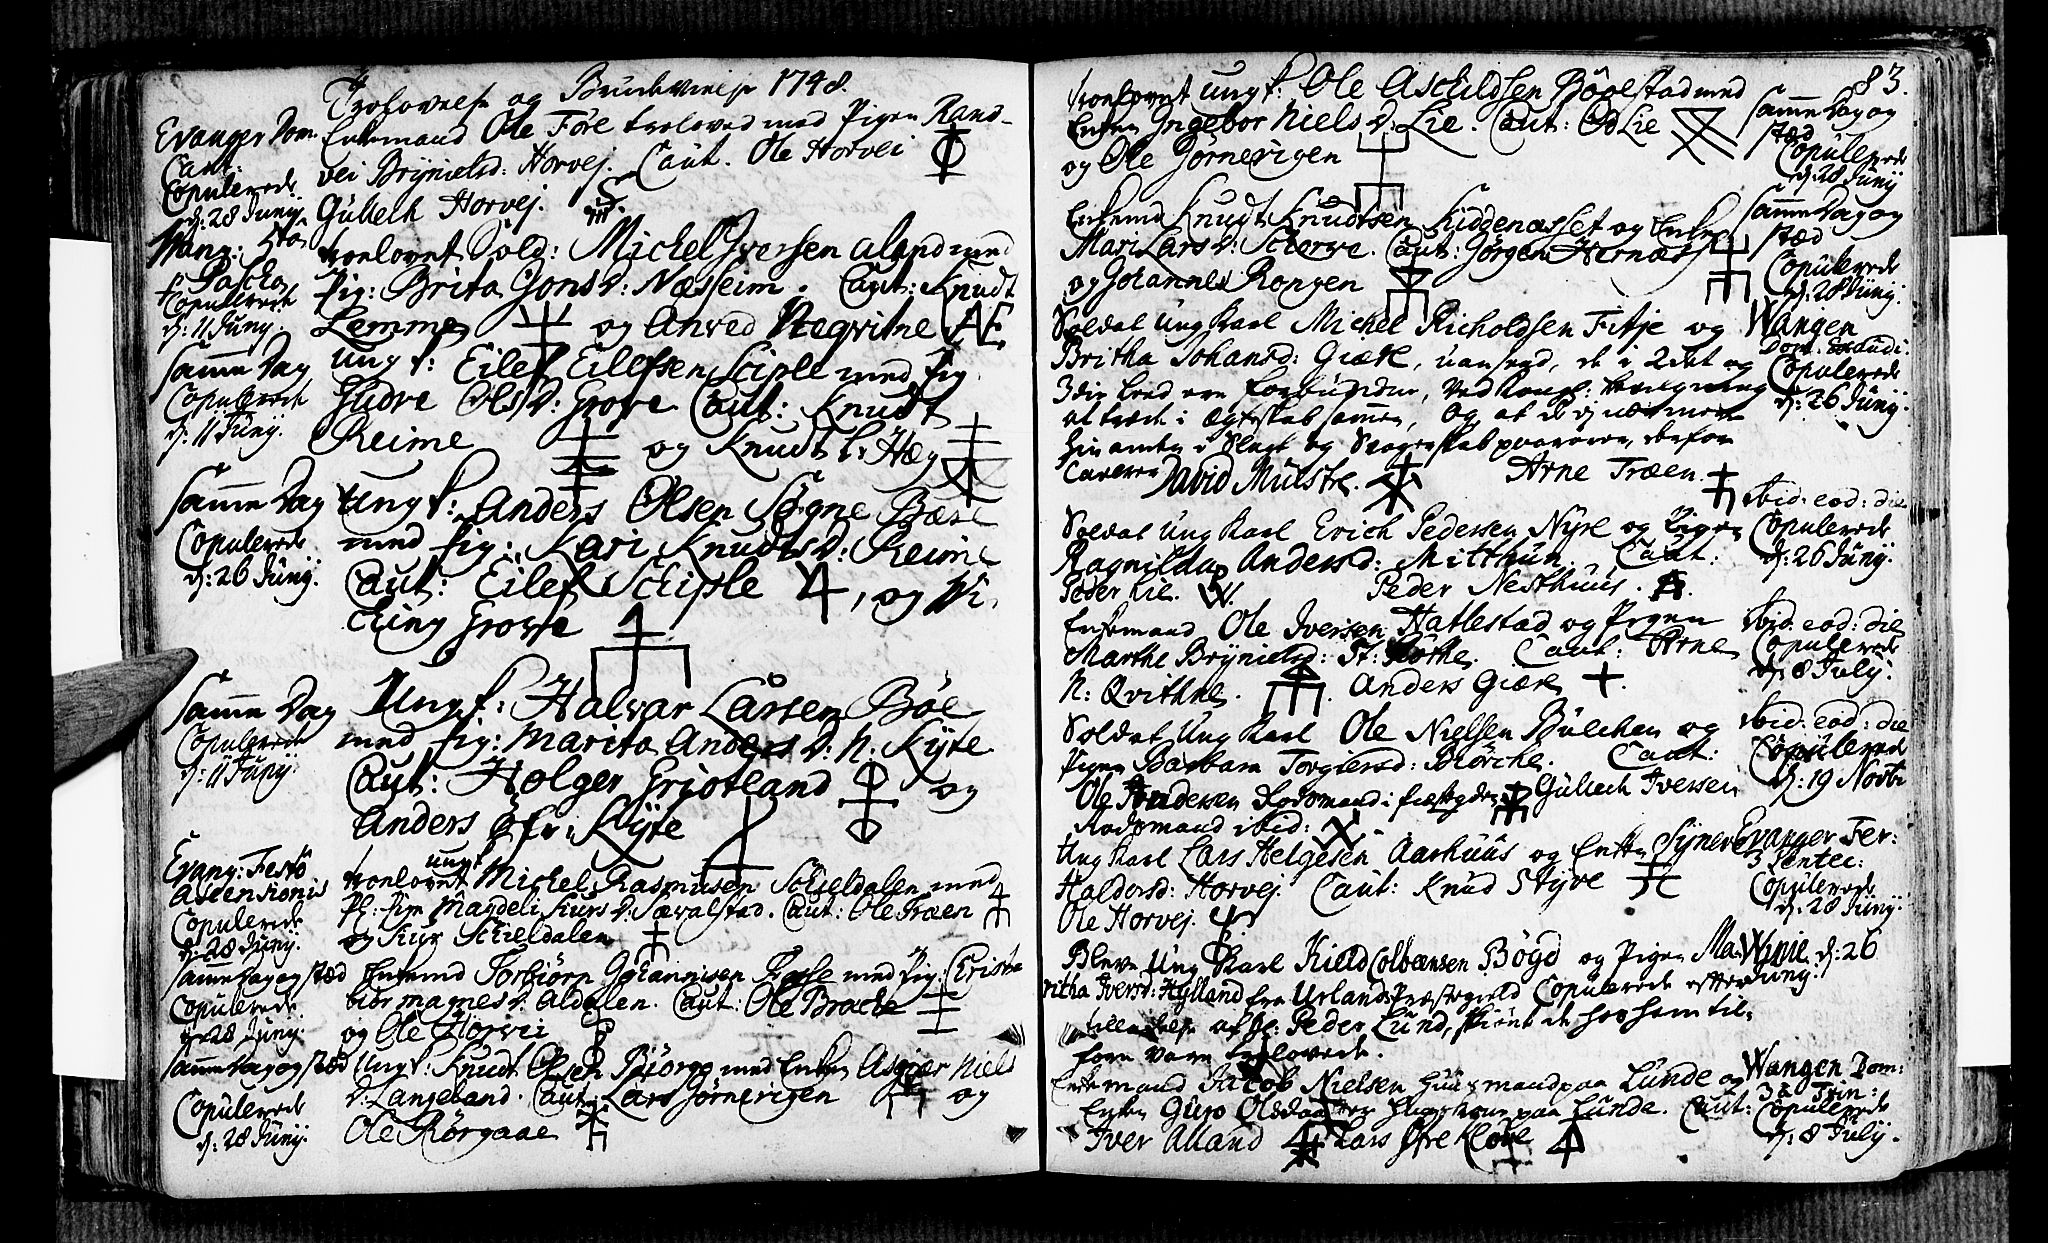 Trolovelse og Brudevielse 1748.
Evanger Dom.
Cant:
Copulerede
d: 28 Junÿ.
Enkemand Ole Före troloved med Pigen Rand-
vei Brÿnielsd: Horvej. Caut. Ole Horvei
Gulleck Horvej.
Wang: 
Pascha
Copulerede
d: 11 Junÿ.
tronlovet Sold: Michel Iversen Aland med
Pig: Brita Jons D: Næsheim. Caut: Knudt
Lemme og AnvedÆgvitne
Samme Dag
Copulerede
d: 11 Junÿ.
ungk: Eilef Eilefsen Sciple med Pig
Gudve Ols D: Grove Caut: Knudt
Reime og Knudt L: Hæg
Samme Dag
Copulerede
d: 26 Junÿ.
Ungk: Anders Olsen Søgne Bære
med Pig: Kari Knudts D: Reime
Caut: Eilef Sciple, og Vi
King Grove
Samme Dag
Copulerede
d: 11 Junÿ.
Ungk: Halvar Larsen Böe
med Pig: Marita Anders D: N. Kÿte
Caut: Holger Griotland og
Anders Kÿte
Evang: Festo
Ascensionis
Copulerede
d: 28 Junÿ.
tronlovet ungk Michel Rasmusen Sckieldalen med
Pig Magdeli Siurs D: Sævalstad. Caut: Ole Træen
og Siur Sckieldalen
Samme Dag og stæd
Copulerede
d: 28 Junÿ.
Enkemd Torbiörn Johannisen Fasse med Pig: Crist
biör Magnes D. Aldalen. Caut: Ole Bracke
og Ole Horvei
Samme Dag og stæd
Copulerede
d: 28 Junÿ.
Ungk: Knudt Olsen Biörge med Enken Asgiær Niels
D: Langeland. Caut: Lars Jörnevigen og
Ole Rörgaae
83.
tronlovet Ungk: Ole Aschildsen Böelstad med
Enken Ingebor Niels D: Lie. Caut: Od Lie
og Ole Jörnevigen
Samme Dag og
stæd
Copulerede
d: 28 Junÿ
Enkemd Knudt Knudtsen Kiddenæsset og Enken
Mari Lars D: Schorve. Caut: Jörgen Hernæs
og Johannes Rongen
Samme Dag og
stæd
Copulerede
d: 28 Junÿ.
Soldat Ung Karl Michel Richoldsen Fitje og
Britha Johansd: Giære, uanseed, de i 2det og
3die Leed ere forbundne, ved Kongl: bevilgning
at træde i Ægteskab samen, og at de ej nærmere
hinanden i Slegt og Svogerskab paarörer, derfor
Caverer David Mülstr. Arne Træen.
Wangen
Dom:
Copulerede
d: 26 Junÿ.
Soldat Ung Karl Erich Pedersen Nÿre og Pigen
Ragnilda Andersd: Mitthun Caut:
Peder Lie. Peder Nesthuus.
ibid: eod: die
Copulerede
d: 26 Junÿ.
Enkemand Ole Iversen Hatlestad og Pigen
Marthe Brÿnielsd: St: Röthe. Caut: Arne
N: Qvithne. Anders Giære
ibid: eod: die
Copulerede
d: 8 Julÿ.
Soldat Ung Karl Ole Nielsen Bülcken og
Pigen Barbara Torgiersd: Börche. Caut:
Ole Andersen Rodsmand i Gulleck Iversen
Rodsmand ibid:
ibid: eod: die
Copulerede
d: 19 Novbr
Ung Karl Lars Helgesen Aarhuus og Enken Sÿner
Haldorsd: Horvej. Caut: Knud Stÿve
Ole Horvej.
Evanger Fer:
3 Pentec:
Copulerede
d: 28 Junÿ.
Bleve Ung Karl Kield Colbeensen Böÿd og Pigen Ma-
ritha Iversd: Hylland fra Urlands Præstegield Copulerede efter
tilladelse af Hr: Peder Lund, skiönt de hos ham til-
forn vare trolovede.
Winje d: 26
Junÿ.
Enkemand Jacob Nielsen Huusmand paa Lunde og
Enken Guro Olsdaatter Huuskone paa Lunde. Caut:
Iver Alland Lars Öfre Klöve
Wangen Dom:
3a Trin:
Copulerede
d: 8 Julÿ.